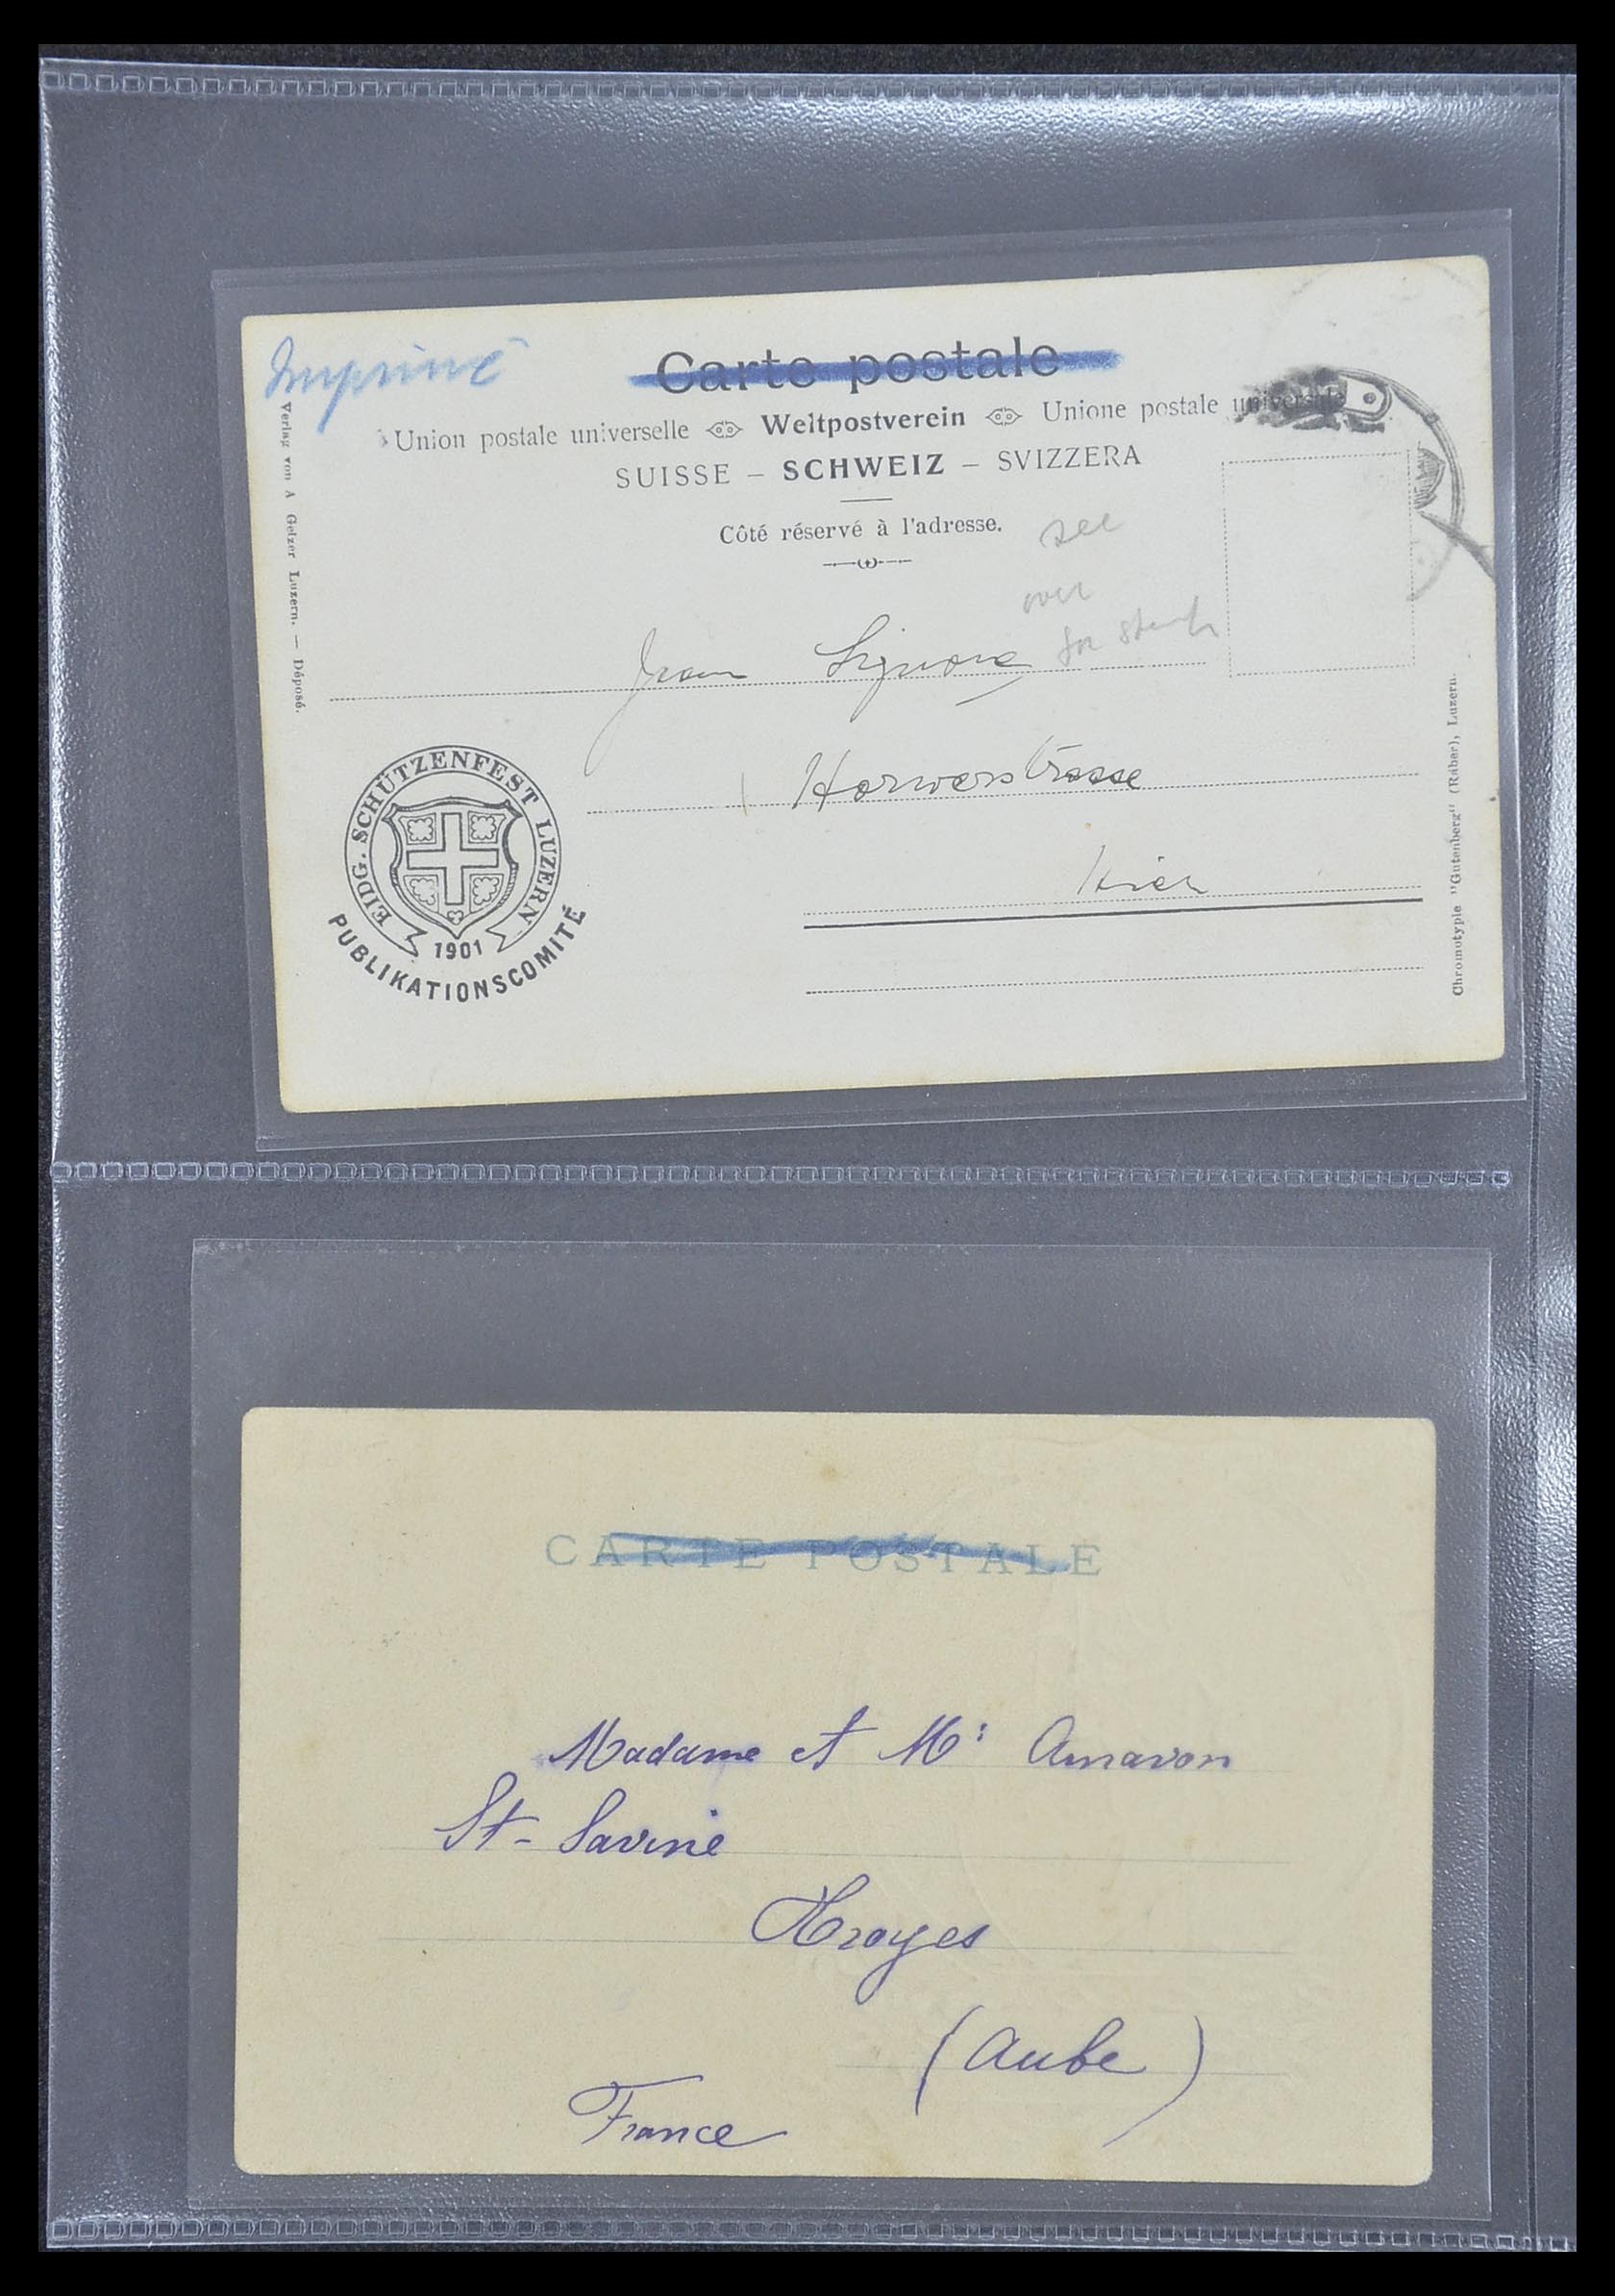 Imprimé
Carte postale
Union postale universelle Weltpostverein Unione postale universale
SUISSE – SCHWEIZ – SVIZZERA
Côté réservé à l'adresse.
see
over
for stamp
Jean
Horwerstrasse
Hier
Verlag von A Gelzer Luzern. — Déposé.
EIDG. SCHÜTZENFEST LUZERN
1901
PUBLIKATIONSCOMITÉ
Chromotypie "Gutenberg" (Räber), Luzern.
CARTE POSTALE
Madame et Mr Amavon
St-Savine
Troyes
(Aube)
France